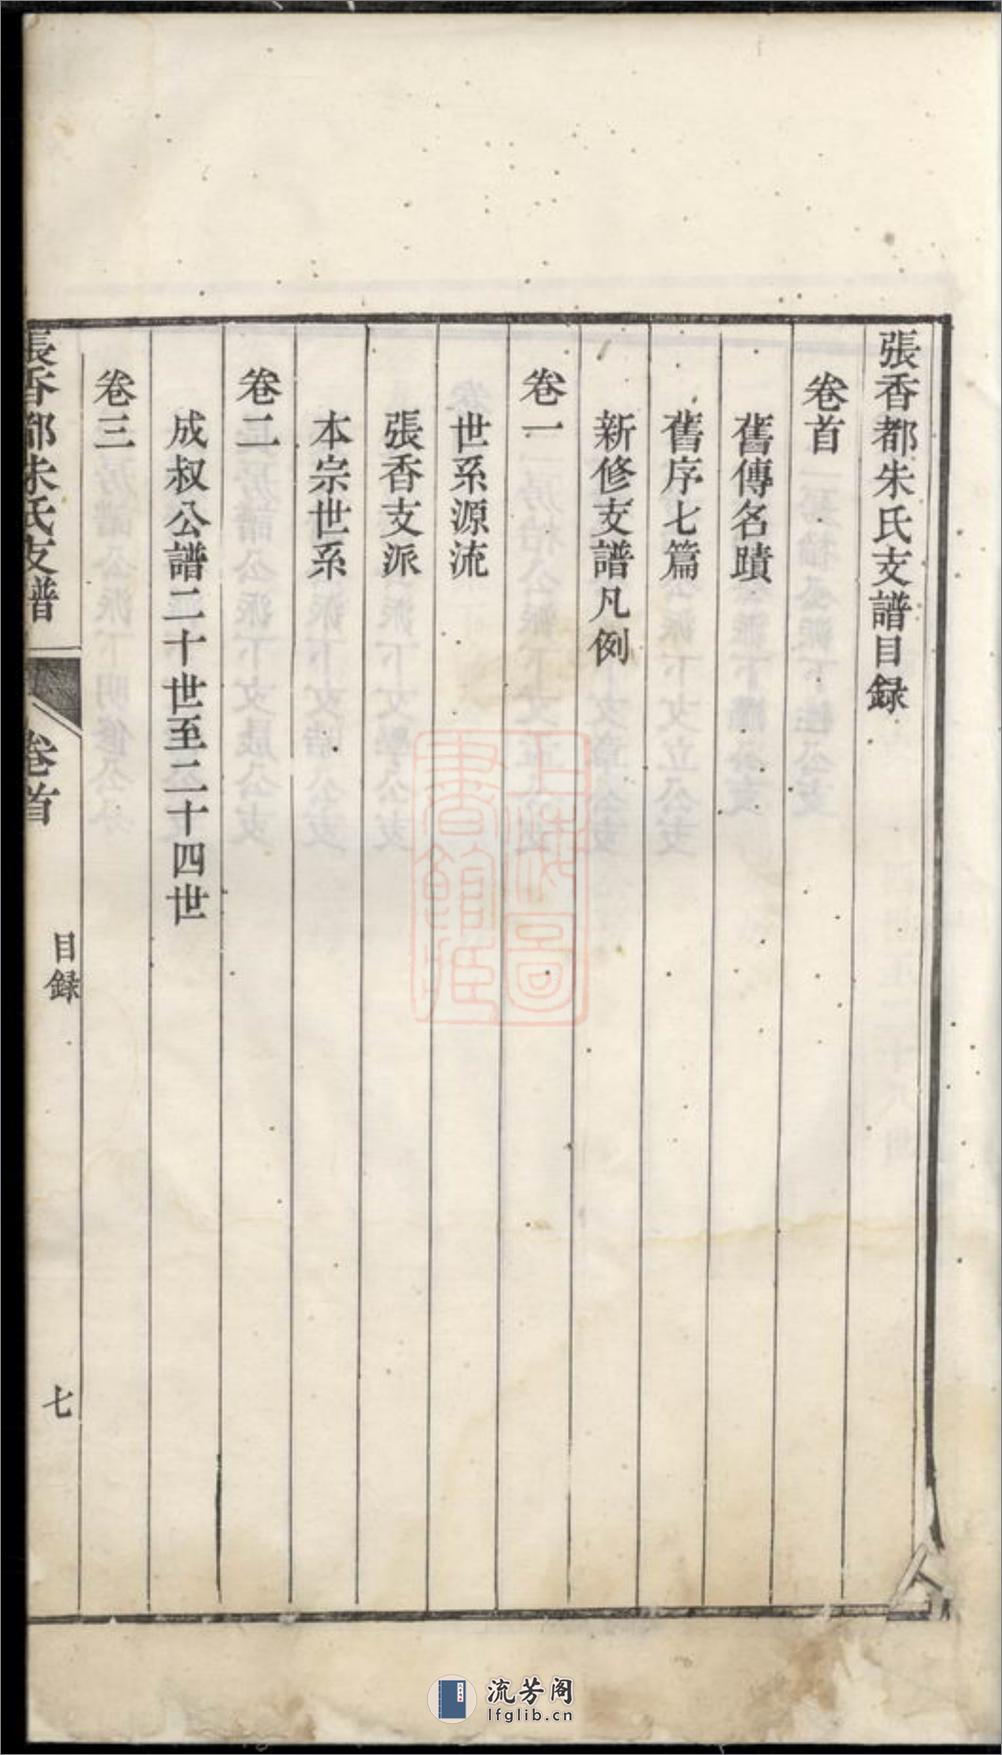 張香都朱氏支譜目録
卷首
舊傳名蹟
舊序七篇
新修支譜凡例
卷一
世系源流
張香支派
本宗世系
卷二
成叔公譜二十世至二十四世
卷三
張香都朱氏支譜
卷首
目録
七
上海圖
書館藏
流芳阁
lfglib.cn